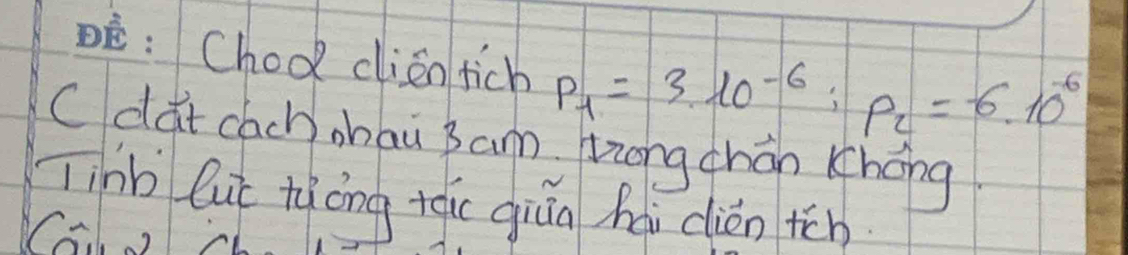 ĐỀ: Cho 2 điện tích P₁ = 3.10⁻⁶; P₂ = 6.10⁻⁶
C đặt cách nhau 3cm. trong chân không.
Tính lực tương tác giữa hai điện tích.
Câu 2